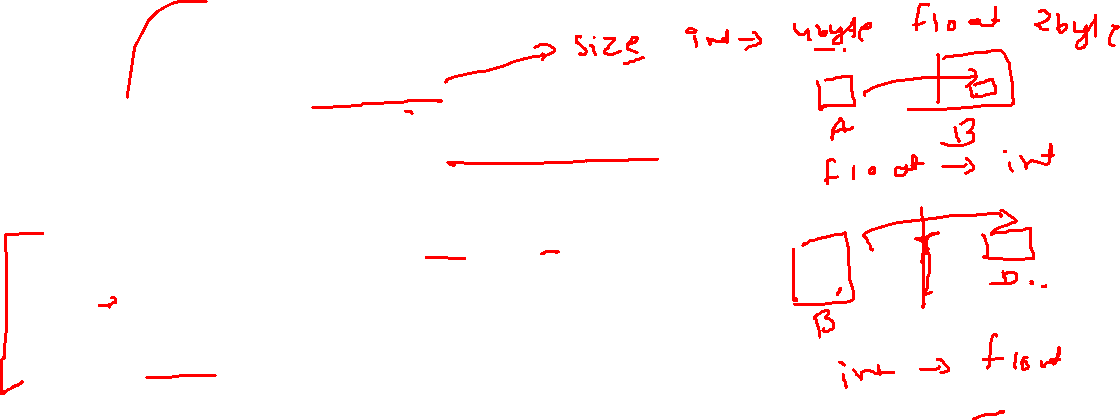 size int → 4byte float 2byte
A B
float → int
B D..
int → float